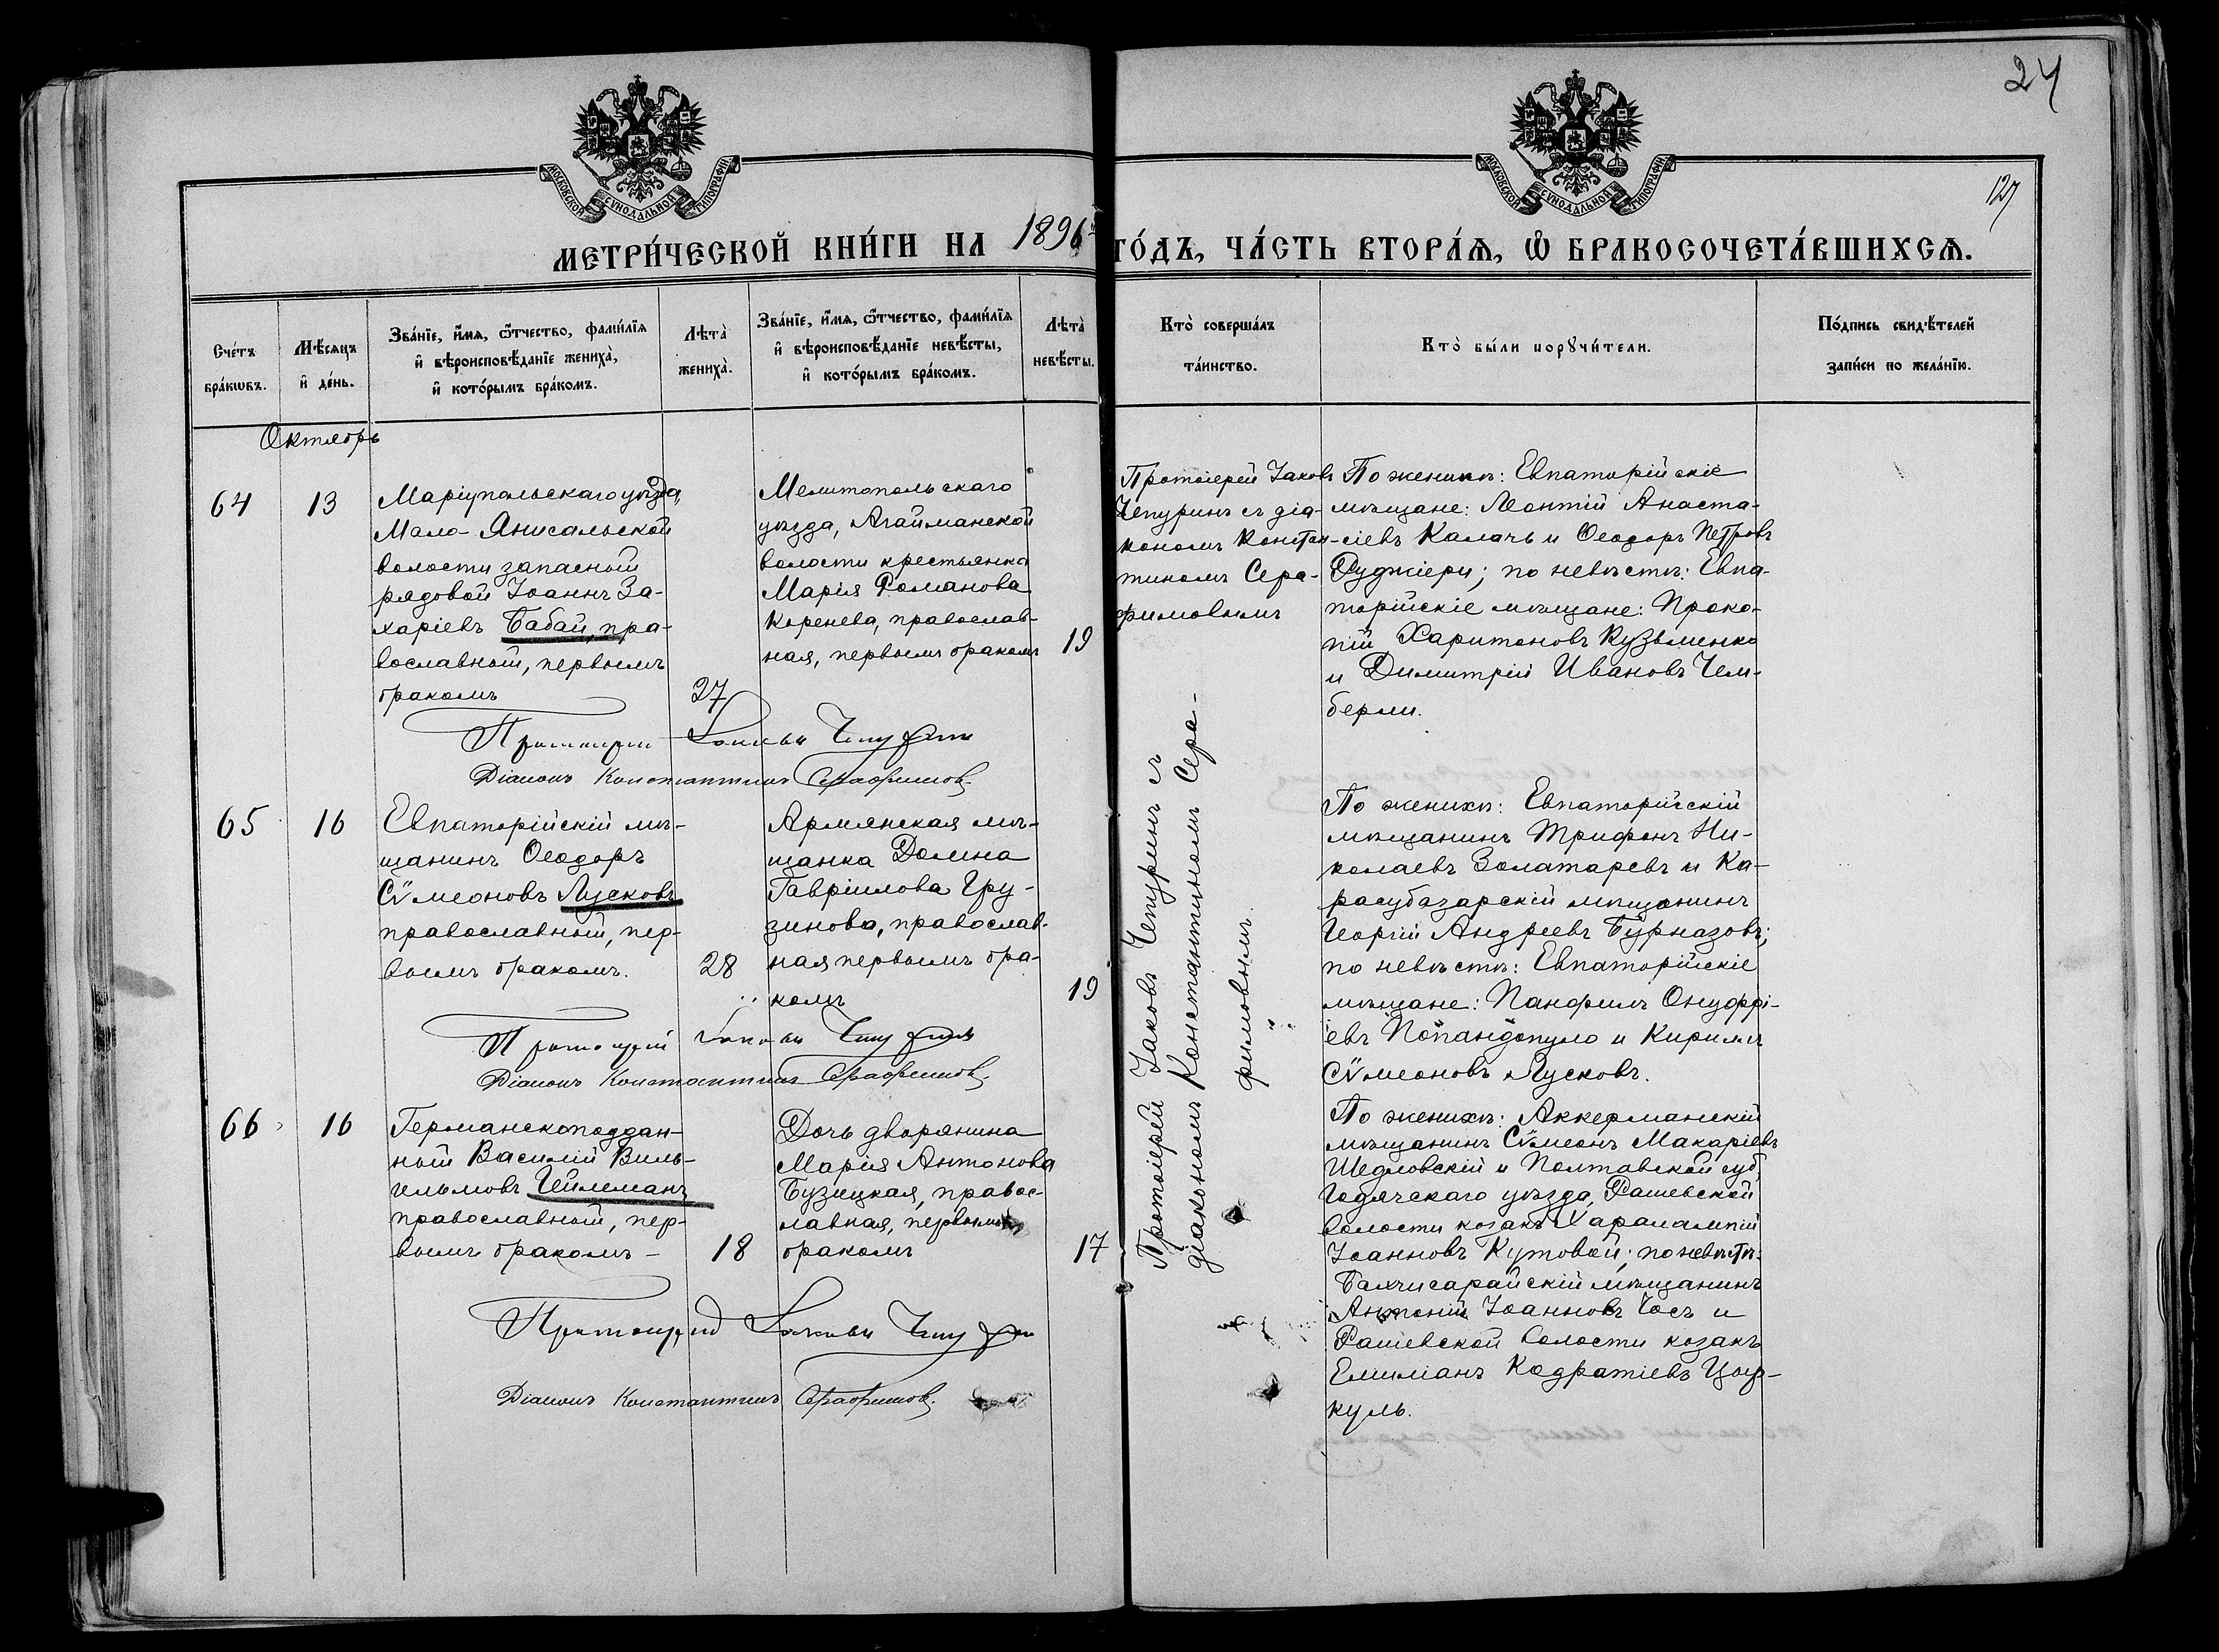 24
127
МОСКОВСКОЙ СѴНОДАЛЬНОЙ ТИПОГРАФІИ
МОСКОВСКОЙ СѴНОДАЛЬНОЙ ТИПОГРАФІИ
МЕТРИ́ЧЕСКОЙ КНИ́ГИ НА 1896 ГО́ДЪ, ЧА́СТЬ ВТОРА́Ѧ, Ѽ БРАКОСОЧЕТА́ВШИХСѦ.
Сче́тъ
бра́кѡвъ.
Мѣ́сѧцъ
и҆ де́нь.
Зва́нїе, и҆́мѧ, ѻ҆́тчество, фами́лїѧ
и҆ вѣроисповѣ́данїе жениха̀,
и҆ кото́рымъ бра́комъ.
Лѣта̀
жениха̀.
Зва́нїе, и҆́мѧ, ѻ҆́тчество, фами́лїѧ
и҆ вѣроисповѣ́данїе невѣ́сты,
и҆ кото́рымъ бра́комъ.
Лѣта̀
невѣ́сты.
Кто̀ соверша́лъ
та́инство.
Кто̀ бы́ли порꙋчи́тели.
По́дпись свидѣ́телей
за́писи по жела́нїю.
Октябрь
64
13
Маріупольскаго уѣзда,
Мало-Янисальской
волости запасный
рядовой Іоаннъ За-
харіевъ Бабай, пра-
вославный, первымъ
бракомъ
27
Мелитопольскаго
уѣзда, Агайманской
волости крестьянка
Марія Романова
Коренева, православ-
ная, первымъ бракомъ
19
Протоіерей Іаковъ
Чепуринъ съ діа-
кономъ Констан-
тиномъ Сера-
фимовымъ
По женихѣ: Евпаторійскіе
мѣщане: Леонтій Анаста-
сіевъ Калачъ и Ѳеодоръ Петровъ
Руджіери; по невѣстѣ: Евпа-
торійскіе мѣщане: Проко-
пій Харитоновъ Кузьменко
и Димитрій Ивановъ Чем-
берли.
Протоіерей Іаковъ Чепуринъ
Діаконъ Константинъ Серафимовъ
65
16
Евпаторійскій мѣ-
щанинъ Ѳеодоръ
Сѷмеоновъ Лусковъ
православный, пер-
вымъ бракомъ.
28
Армянская мѣ-
щанка Домна
Гавріилова Гру-
зинова, православ-
ная первымъ бра-
комъ
19
Протоіерей Іаковъ Чепуринъ съ
діакономъ Константиномъ Сера-
фимовымъ.
По женихѣ: Евпаторійскій
мѣщанинъ Трифонъ Ни-
колаевъ Золатаревъ и Ка-
расубазарскій мѣщанинъ
Георгій Андреевъ Бурназовъ;
по невѣстѣ: Евпаторійскіе
мѣщане: Панфилъ Онуфрі-
евъ Попандопуло и Кириллъ
Сѷмеоновъ Лусковъ.
Протоіерей Іаковъ Чепуринъ
Діаконъ Константинъ Серафимовъ
66
16
Германскоподдан-
ный Василій Виль-
гельмовъ Гейлеманъ
православный, пер-
вымъ бракомъ -
18
Дочь дворянина
Марія Антонова
Бузицкая, правос-
лавная, первымъ
бракомъ
17
По женихѣ: Аккерманскій
мѣщанинъ Сѷмеонъ Макаріевъ
Шедловскій и Полтавской губ,
Гадячскаго уѣзда, Рашевской
волости козакъ Харалампій
Іоанновъ Кутовой; по невѣстѣ:
Бахчисарайскій мѣщанинъ
Антоній Іоанновъ Чосъ и
Рашевской волости козакъ
Емиліанъ Кадратіевъ Цыр-
куль.
Протоіерей Іаковъ Чепуринъ
Діаконъ Константинъ Серафимовъ